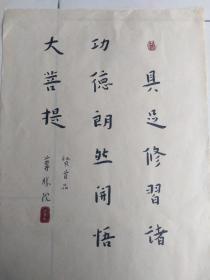 具足修习諸
功德朗然開悟
大菩提
贤首品